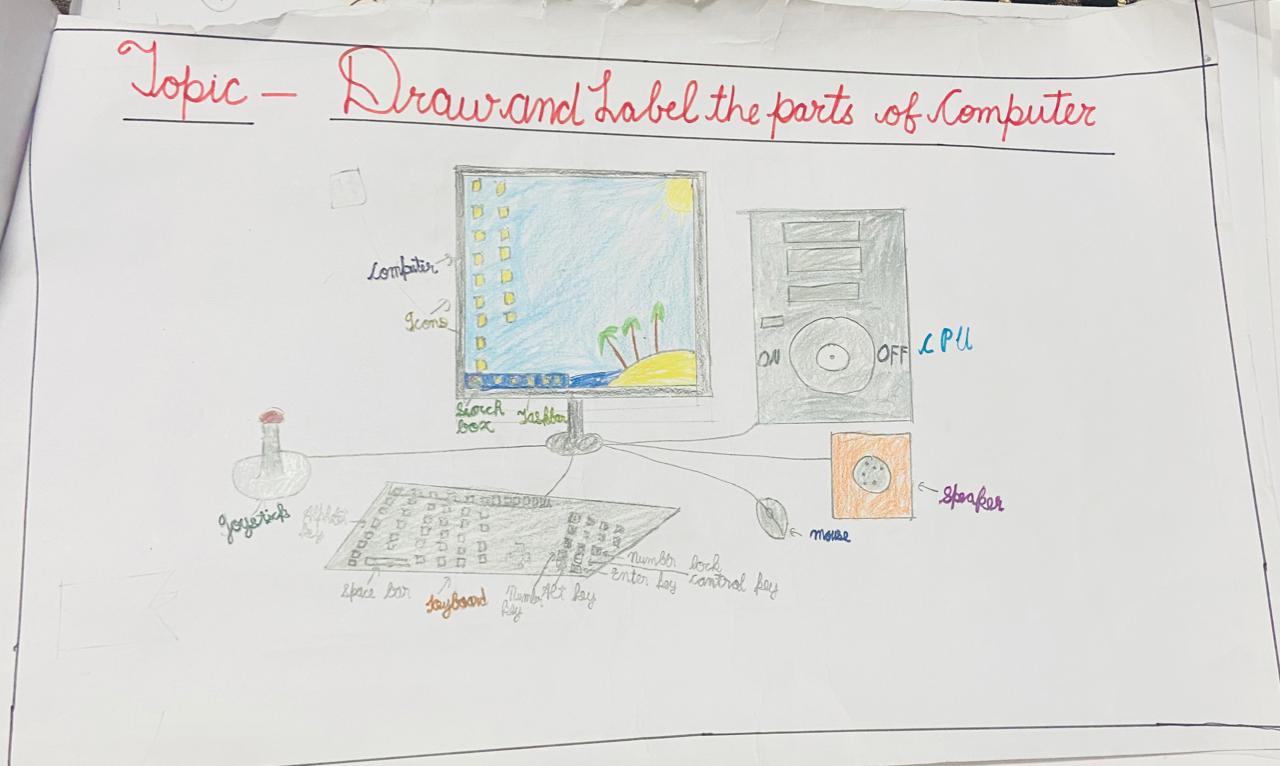 Topic — Draw and Label the parts of Computer
Computer
Icons
ON
OFF
CPU
Serch box
Taskbar
Joystick
Speaker
mouse
Space bar
Keyboard
Alt key
Number lock
Enter key
control key